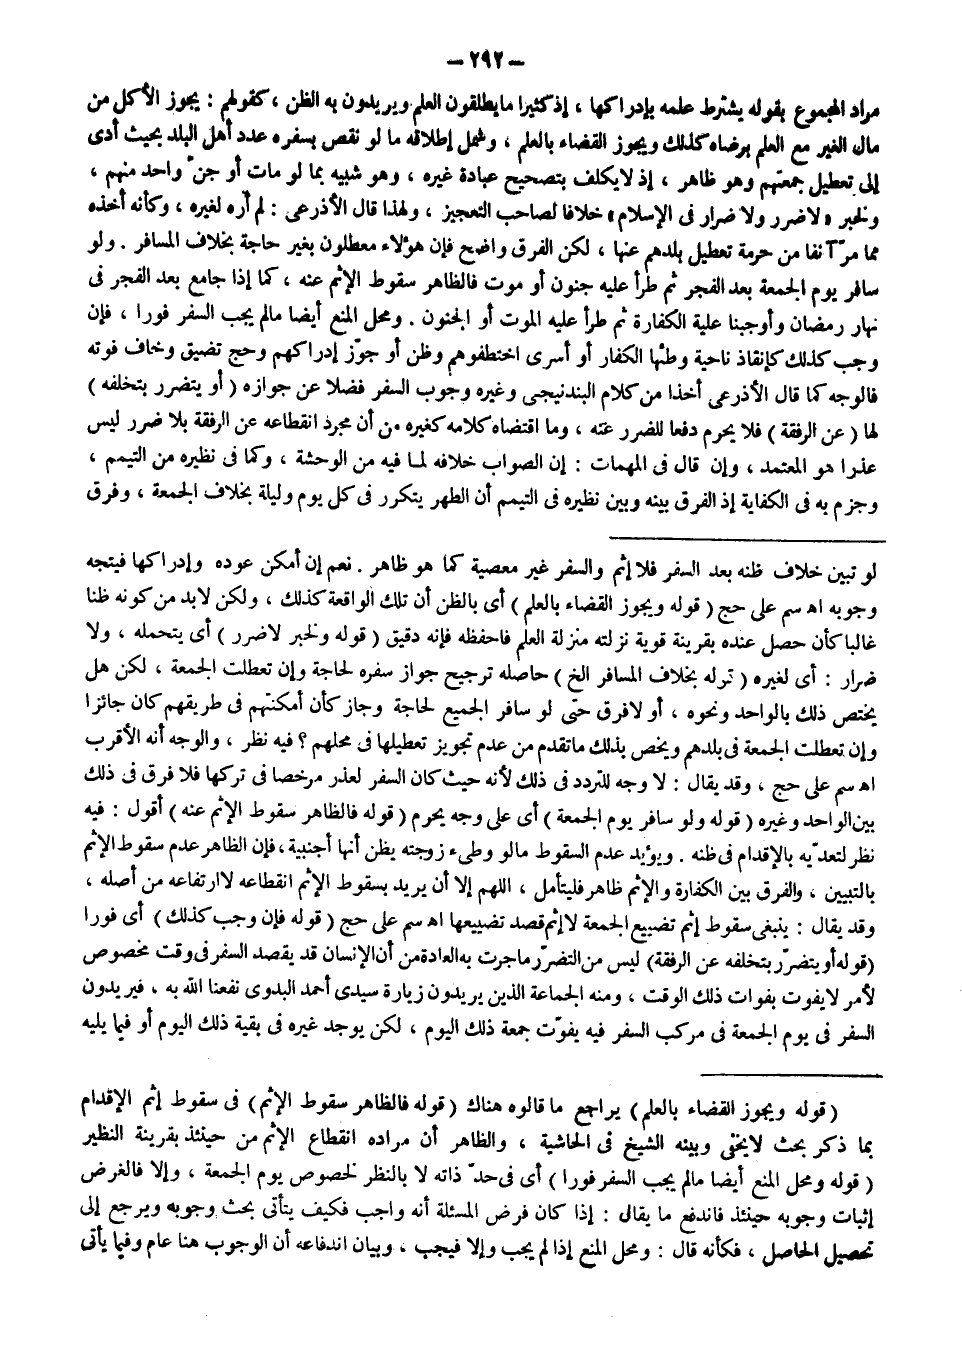 — ٢٩٢ —
مراد المجموع بقوله يشترط علمه بإدراكها ، إذ كثيرا ما يطلقون العلم ويريدون به الظن ، كقولهم : يجوز الأكل من
مال الغير مع العلم برضاه كذلك ويجوز القضاء بالعلم ، وشمل إطلاقه ما لو نقص بسفره عدد أهل البلد بحيث أدى
إلى تعطيل جمعتهم وهو ظاهر ، إذ لا يكلف بتصحيح عبادة غيره ، وهو شبيه بما لو مات أو جنّ واحد منهم ،
ولخبر «لا ضرر ولا ضرار فى الإسلام» خلافا لصاحب التعجيز ، ولهذا قال الأذرعى : لم أره لغيره ، وكأنه أخذه
مما مرّ آنفا من حرمة تعطيل بلدهم عنها ، لكن الفرق واضح فإن هؤلاء معطلون بغير حاجة بخلاف المسافر . ولو
سافر يوم الجمعة بعد الفجر ثم طرأ عليه جنون أو موت فالظاهر سقوط الإثم عنه ، كما إذا جامع بعد الفجر فى
نهار رمضان وأوجبنا علية الكفارة ثم طرأ عليه الموت أو الجنون . ومحل المنع أيضا مالم يجب السفر فورا ، فإن
وجب كذلك كإنقاذ ناحية وطئها الكفار أو أسرى اختطفوهم وظن أو جوّز إدراكهم وحج تضيق وخاف فوته
فالوجه كما قال الأذرعى أخذا من كلام البندنيجى وغيره وجوب السفر فضلا عن جوازه ( أو يتضرر بتخلفه )
لها ( عن الرفقة ) فلا يحرم دفعا للضرر عنه ، وما اقتضاه كلامه كغيره من أن مجرد انقطاعه عن الرفقة بلا ضرر ليس
عذرا هو المعتمد ، وإن قال فى المهمات : إن الصواب خلافه لما فيه من الوحشة ، وكما فى نظيره من التيمم ،
وجزم به فى الكفاية إذ الفرق بينه وبين نظيره فى التيمم أن الطهر يتكرر فى كل يوم وليلة بخلاف الجمعة ، وفرق
لو تبين خلاف ظنه بعد السفر فلا إثم والسفر غير معصية كما هو ظاهر . نعم إن أمكن عوده وإدراكها فيتجه
وجوبه اه سم على حج ( قوله ويجوز القضاء بالعلم ) أى بالظن أن تلك الواقعة كذلك ، ولكن لابد من كونه ظنا
غالبا كأن حصل عنده بقرينة قوية نزلته منزلة العلم فاحفظه فإنه دقيق ( قوله ولخبر لاضرر ) أى يتحمله ، ولا
ضرار : أى لغيره ( قوله بخلاف المسافر الخ ) حاصله ترجيح جواز سفره لحاجة وإن تعطلت الجمعة ، لكن هل
يختص ذلك بالواحد ونحوه ، أو لافرق حتى لو سافر الجميع لحاجة وجاز كأن أمكنتهم فى طريقهم كان جائزا
وإن تعطلت الجمعة فى بلدهم ويخص بذلك ماتقدم من عدم تجويز تعطيلها فى محلهم ؟ فيه نظر ، والوجه أنه الأقرب
اه سم على حج ، وقد يقال : لا وجه للتردد فى ذلك لأنه حيث كان السفر لعذر مرخصا فى تركها فلا فرق فى ذلك
بين الواحد وغيره ( قوله ولو سافر يوم الجمعة ) أى على وجه يحرم ( قوله فالظاهر سقوط الإثم عنه ) أقول : فيه
نظر لتعدّيه بالإقدام فى ظنه . ويؤيد عدم السقوط مالو وطىء زوجته يظن أنها أجنبية ، فإن الظاهر عدم سقوط الإثم
بالتبيين ، والفرق بين الكفارة والإثم ظاهر فليتأمل ، اللهم إلا أن يريد بسقوط الإثم انقطاعه لا ارتفاعه من أصله ،
وقد يقال : ينبغى سقوط إثم تضييع الجمعة لا إثم قصد تضييعها اه سم على حج ( قوله فإن وجب كذلك ) أى فورا
(قوله أو يتضرّر بتخلفه عن الرفقة) ليس من التضرّر ماجرت به العادة من أن الإنسان قد يقصد السفر فى وقت مخصوص
لأمر لايفوت بفوات ذلك الوقت ، ومنه الجماعة الذين يريدون زيارة سيدى أحمد البدوى نفعنا الله به ، فيريدون
السفر فى يوم الجمعة فى مركب السفر فيه يفوّت جمعة ذلك اليوم ، لكن يوجد غيره فى بقية ذلك اليوم أو فيما يليه
(قوله ويجوز القضاء بالعلم) يراجع ما قالوه هناك (قوله فالظاهر سقوط الإثم) فى سقوط إثم الإقدام
بما ذكر بحث لايخفى وبينه الشيخ فى الحاشية ، والظاهر أن مراده انقطاع الإثم من حينئذ بقرينة النظير
( قوله ومحل المنع أيضا مالم يجب السفر فورا ) أى فى حدّ ذاته لا بالنظر لخصوص يوم الجمعة ، وإلا فالغرض
إثبات وجوبه حينئذ فاندفع ما يقال : إذا كان فرض المسئلة أنه واجب فكيف يتأتى بحث وجوبه ويرجع إلى
تحصيل الحاصل ، فكأنه قال : ومحل المنع إذا لم يجب وإلا فيجب ، وبيان اندفاعه أن الوجوب هنا عام وفيما يأتى